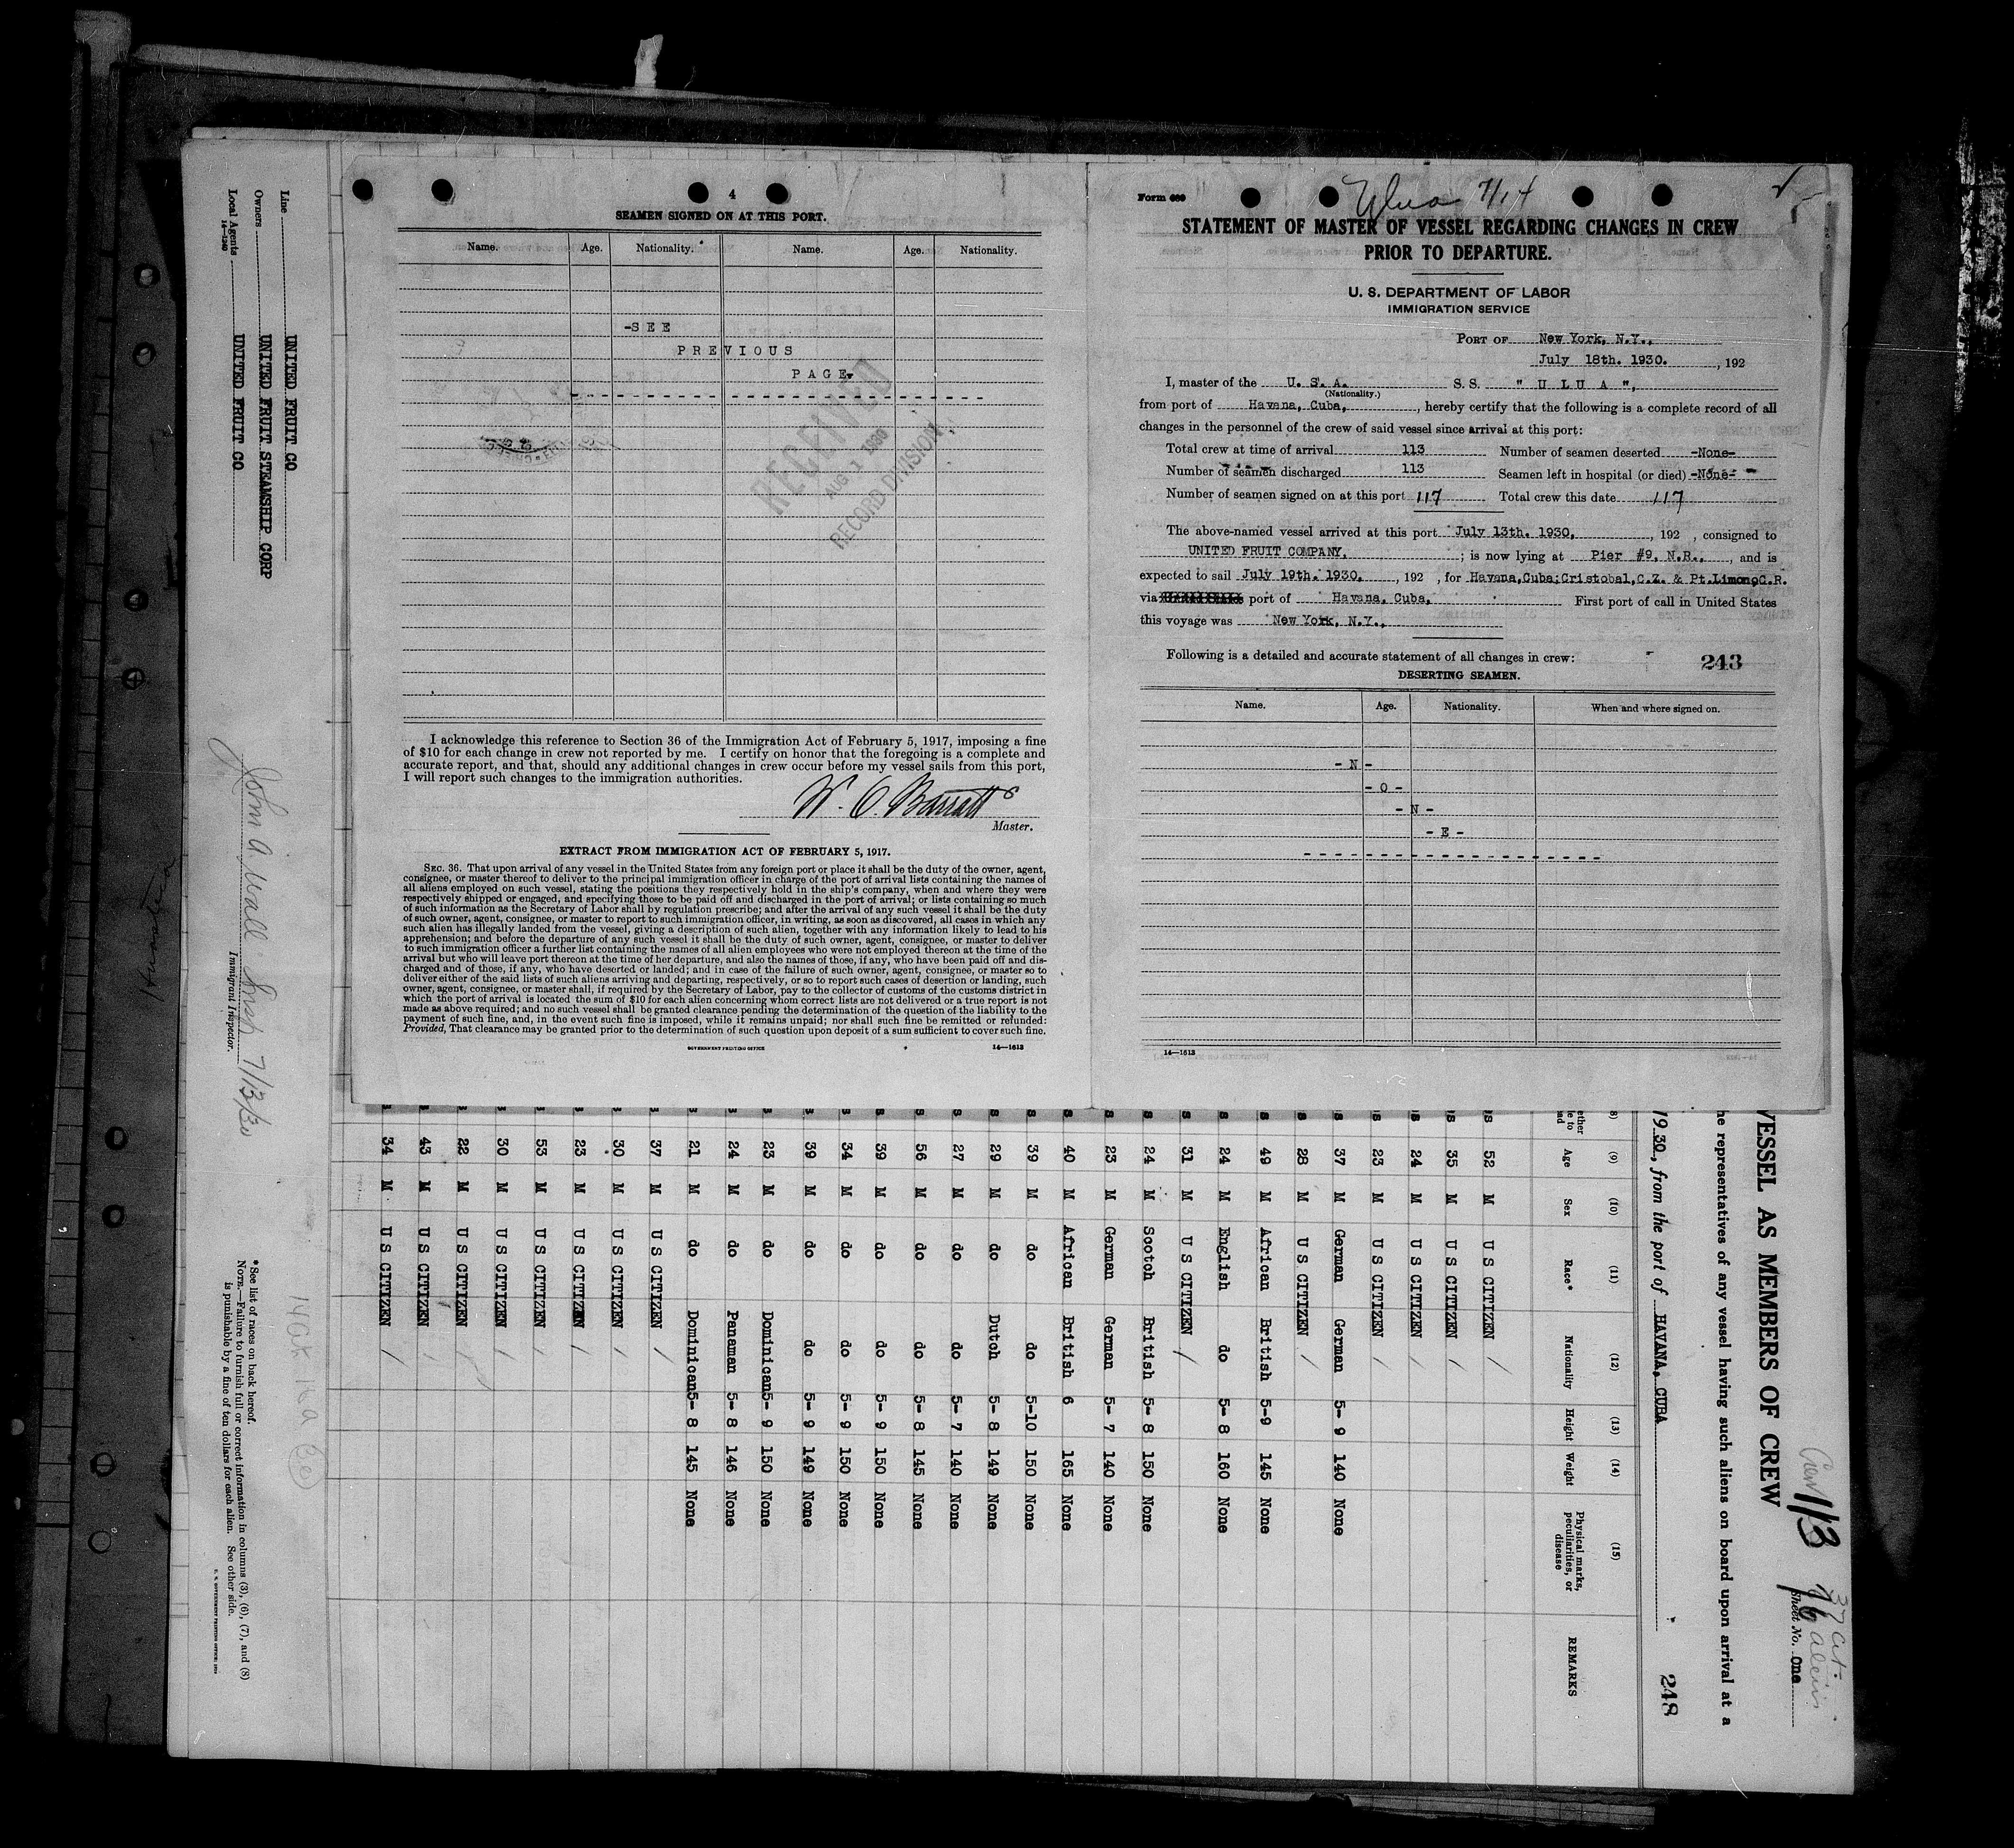 4
SEAMEN SIGNED ON AT THIS PORT.
Name. Age. Nationality. Name. Age. Nationality.
-S E E
P R E V I O U S
P A G E.
RECEIVED
AUG 1 1930
RECORD DIVISION
I acknowledge this reference to Section 36 of the Immigration Act of February 5, 1917, imposing a fine
of $10 for each change in crew not reported by me. I certify on honor that the foregoing is a complete and
accurate report, and that, should any additional changes in crew occur before my vessel sails from this port,
I will report such changes to the immigration authorities.
W. C. Barratt
Master.
EXTRACT FROM IMMIGRATION ACT OF FEBRUARY 5, 1917.
SEC. 36. That upon arrival of any vessel in the United States from any foreign port or place it shall be the duty of the owner, agent,
consignee, or master thereof to deliver to the principal immigration officer in charge of the port of arrival lists containing the names of
all aliens employed on such vessel, stating the positions they respectively hold in the ship's company, when and where they were
respectively shipped or engaged, and specifying those to be paid off and discharged in the port of arrival; or lists containing so much
of such information as the Secretary of Labor shall by regulation prescribe; and after the arrival of any such vessel it shall be the duty
of such owner, agent, consignee, or master to report to such immigration officer, in writing, as soon as discovered, all cases in which any
such alien has illegally landed from the vessel, giving a description of such alien, together with any information likely to lead to his
apprehension; and before the departure of any such vessel it shall be the duty of such owner, agent, consignee, or master to deliver
to such immigration officer a further list containing the names of all alien employees who were not employed thereon at the time of the
arrival but who will leave port thereon at the time of her departure, and also the names of those, if any, who have been paid off and dis-
charged and of those, if any, who have deserted or landed; and in case of the failure of such owner, agent, consignee, or master so to
deliver either of the said lists of such aliens arriving and departing, respectively, or so to report such cases of desertion or landing, such
owner, agent, consignee, or master shall, if required by the Secretary of Labor, pay to the collector of customs of the customs district in
which the port of arrival is located the sum of $10 for each alien concerning whom correct lists are not delivered or a true report is not
made as above required; and no such vessel shall be granted clearance pending the determination of the question of the liability to the
payment of such fine, and, in the event such fine is imposed, while it remains unpaid; nor shall such fine be remitted or refunded:
Provided, That clearance may be granted prior to the determination of such question upon deposit of a sum sufficient to cover such fine.
GOVERNMENT PRINTING OFFICE 14—1613
Form 689
Ulua 7/14
STATEMENT OF MASTER OF VESSEL REGARDING CHANGES IN CREW
PRIOR TO DEPARTURE.
U. S. DEPARTMENT OF LABOR
IMMIGRATION SERVICE
PORT OF New York, N.Y.,
July 18th. 1930. , 192
I, master of the U. S. A. S.S. " U L U A ",
(Nationality.)
from port of Havana, Cuba, , hereby certify that the following is a complete record of all
changes in the personnel of the crew of said vessel since arrival at this port:
Total crew at time of arrival 113 Number of seamen deserted -None-
Number of seamen discharged 113 Seamen left in hospital (or died) -None-
Number of seamen signed on at this port 117 Total crew this date 117
The above-named vessel arrived at this port July 13th. 1930. , 192 , consigned to
UNITED FRUIT COMPANY. ; is now lying at Pier #9, N.R., , and is
expected to sail July 19th. 1930. , 192 , for Havana,Cuba;Cristobal,C.Z. & Pt.Limon,C.R.
via port of Havana, Cuba, First port of call in United States
this voyage was New York, N.Y.,
Following is a detailed and accurate statement of all changes in crew: 243
DESERTING SEAMEN.
Name. Age. Nationality. When and where signed on.
- N -
- O -
- N -
- E -
14—1613
Crew 113 37 cit.
76 aliens
Sheet No. One
VESSEL AS MEMBERS OF CREW
he representatives of any vessel having such aliens on board upon arrival at a
1930, from the port of HAVANA, CUBA 248
(9) (10) (11) (12) (13) (14) (15)
Age Sex Race* Nationality Height Weight Physical marks, peculiarities, or disease REMARKS
52 M U S CITIZEN
35 M U S CITIZEN
24 M U S CITIZEN
23 M U S CITIZEN
37 M German German 5- 9 140 None
28 M U S CITIZEN
49 M African British 5-9 145 None
24 M English do 5- 8 160 None
31 M U S CITIZEN
24 M Scotch British 5- 8 150 None
23 M German German 5- 7 140 None
40 M African British 6 165 None
39 M do do 5-10 150 None
29 M do Dutch 5- 8 149 None
27 M do do 5- 7 140 None
56 M do do 5- 8 145 None
39 M do do 5- 9 150 None
34 M do do 5- 9 150 None
39 M do do 5- 9 149 None
23 M do Dominican 5- 9 150 None
24 M do Panaman 5- 8 146 None
21 M do Dominican 5- 8 145 None
37 M U S CITIZEN
30 M U S CITIZEN
23 M U S CITIZEN
53 M U S CITIZEN
30 M U S CITIZEN
22 M U S CITIZEN
43 M U S CITIZEN
34 M U S CITIZEN
Line UNITED FRUIT CO
Owners UNITED FRUIT STEAMSHIP CORP
Local Agents UNITED FRUIT CO
14—1240
John A. Wall Insp. 7/13/30
Immigrant Inspector.
* See list of races on back hereof.
NOTE.—Failure to furnish full or correct information in columns (3), (6), (7), and (8)
is punishable by a fine of ten dollars for each alien. See other side.